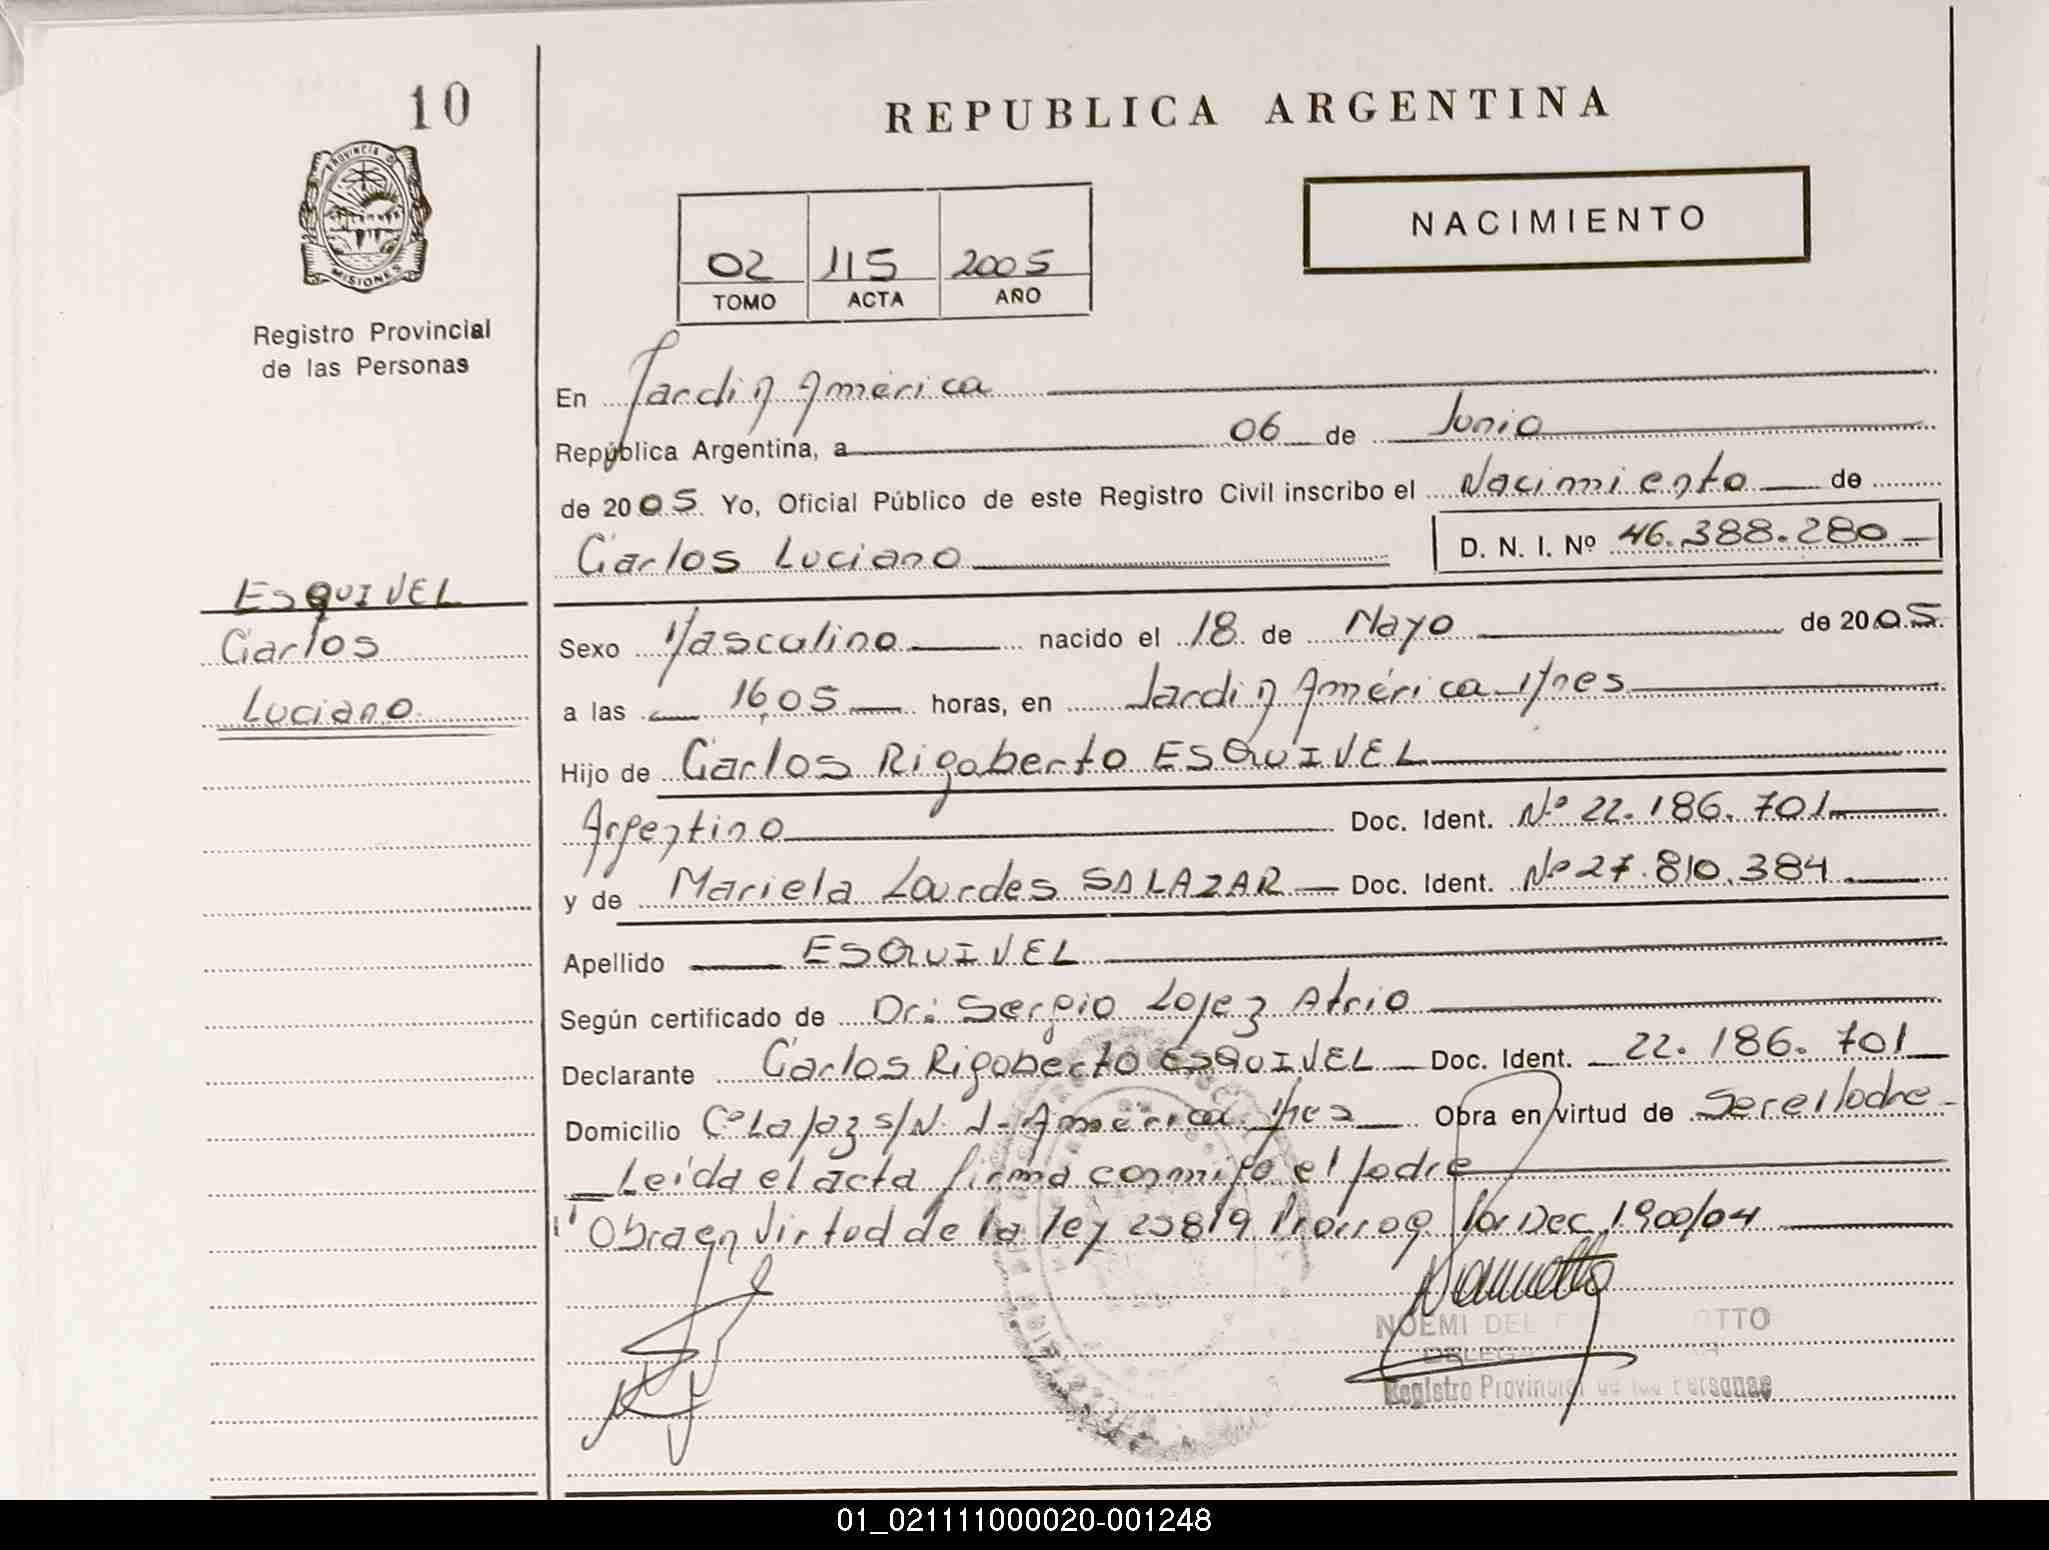 10
PROVINCIA D
MISIONES
Registro Provincial
de las Personas
ESQUIVEL
Carlos
Luciano
REPUBLICA ARGENTINA
NACIMIENTO
02 115 2005
TOMO ACTA AÑO
En Jardin América
República Argentina, a 06 de Junio
de 2005 Yo, Oficial Público de este Registro Civil inscribo el Nacimiento de
Carlos Luciano D. N. I. Nº 46.388.280
Sexo Masculino nacido el 18 de Mayo de 2005
a las 16,05 horas, en Jardin América Mnes
Hijo de Carlos Rigoberto ESQUIVEL
Argentino Doc. Ident. Nº 22.186.701
y de Mariela Lourdes SALAZAR Doc. Ident. Nº 27.810.384
Apellido ESQUIVEL
Según certificado de Dr: Sergio Lopez Atrio
Declarante Carlos Rigoberto ESQUIVEL Doc. Ident. 22.186.701
Domicilio Cº La Paz s/N. J. América Mnes Obra en virtud de Ser el Padre
Leida el acta firma conmigo el padre
Obra en Virtud de la ley 25819 Prorrog. Por Dec. 1900/04
NOEMI DEL OTTO
Registro Provincial de las Personas
01_021111000020-001248